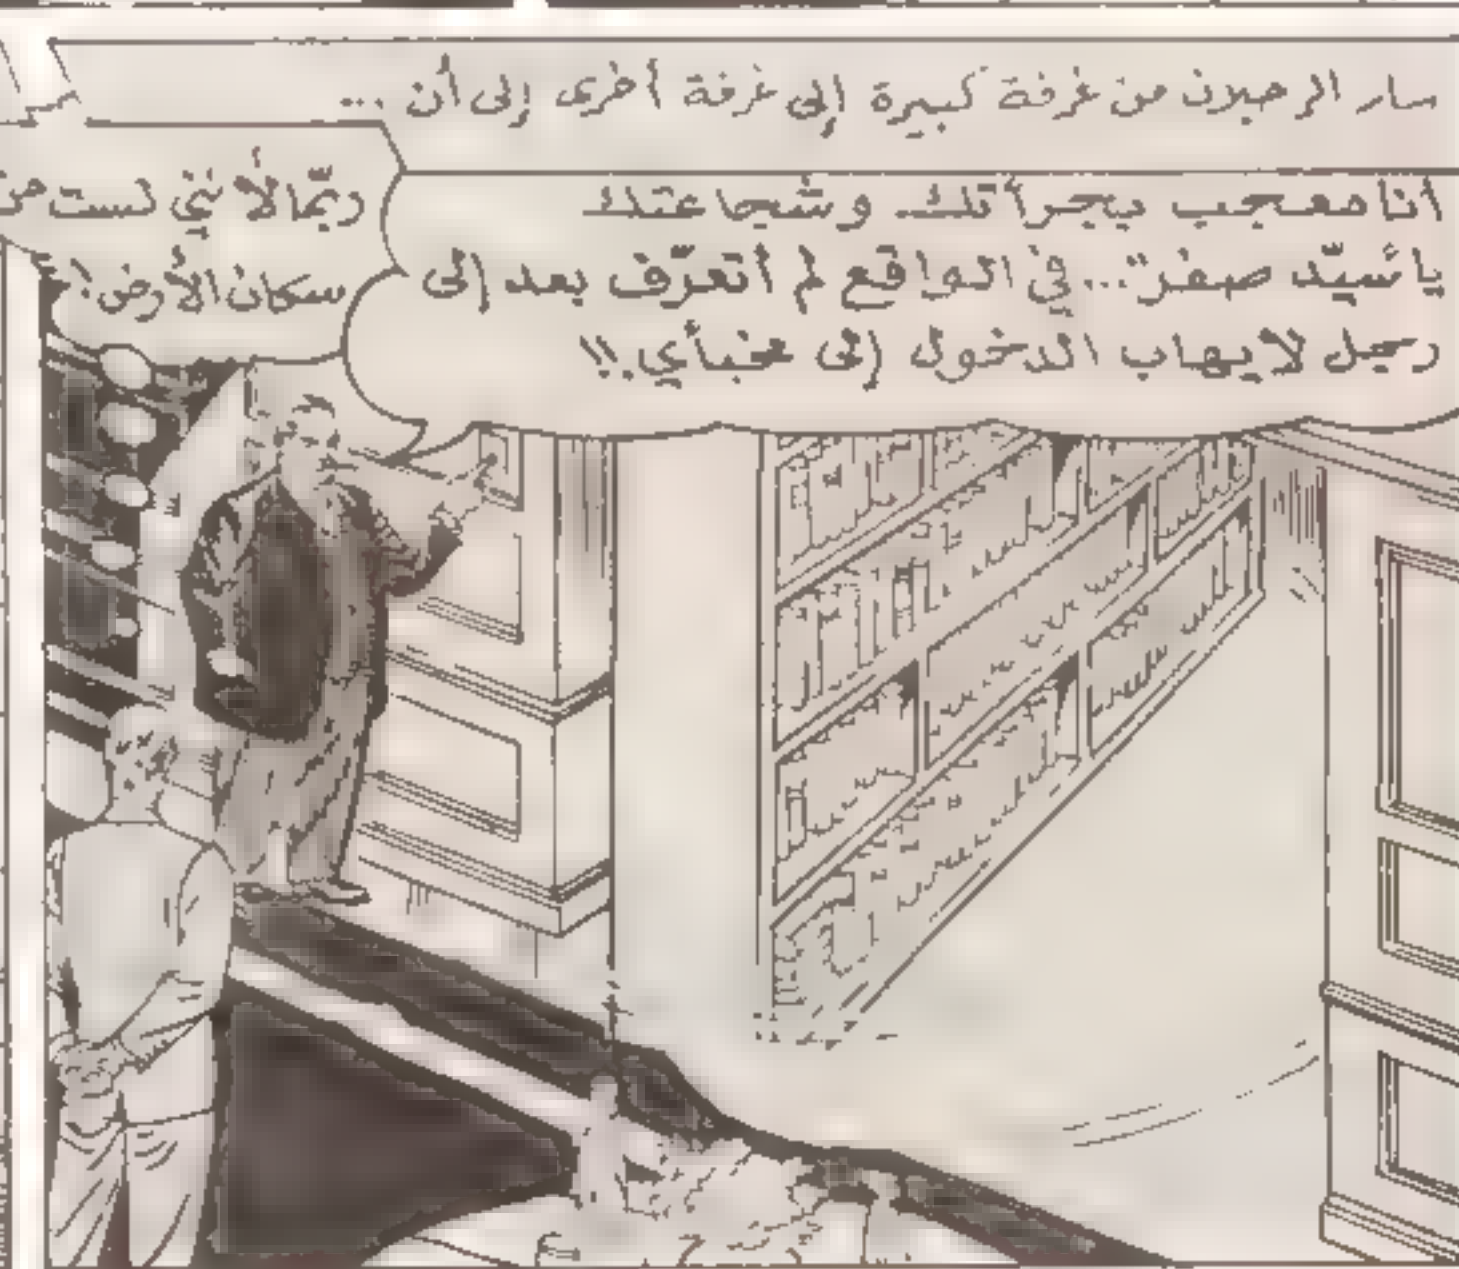 سار الرجلان من غرفة كبيرة إلى غرفة أخرى إلى أن ...
أنا معجب بجرأتك وشجاعتك
يا سيّد "صفر"... في الواقع لم أتعرّف بعد إلى
رجل لا يهاب الدخول إلى مخبأي!!
ربّما لأنني لست من
سكان الأرض!